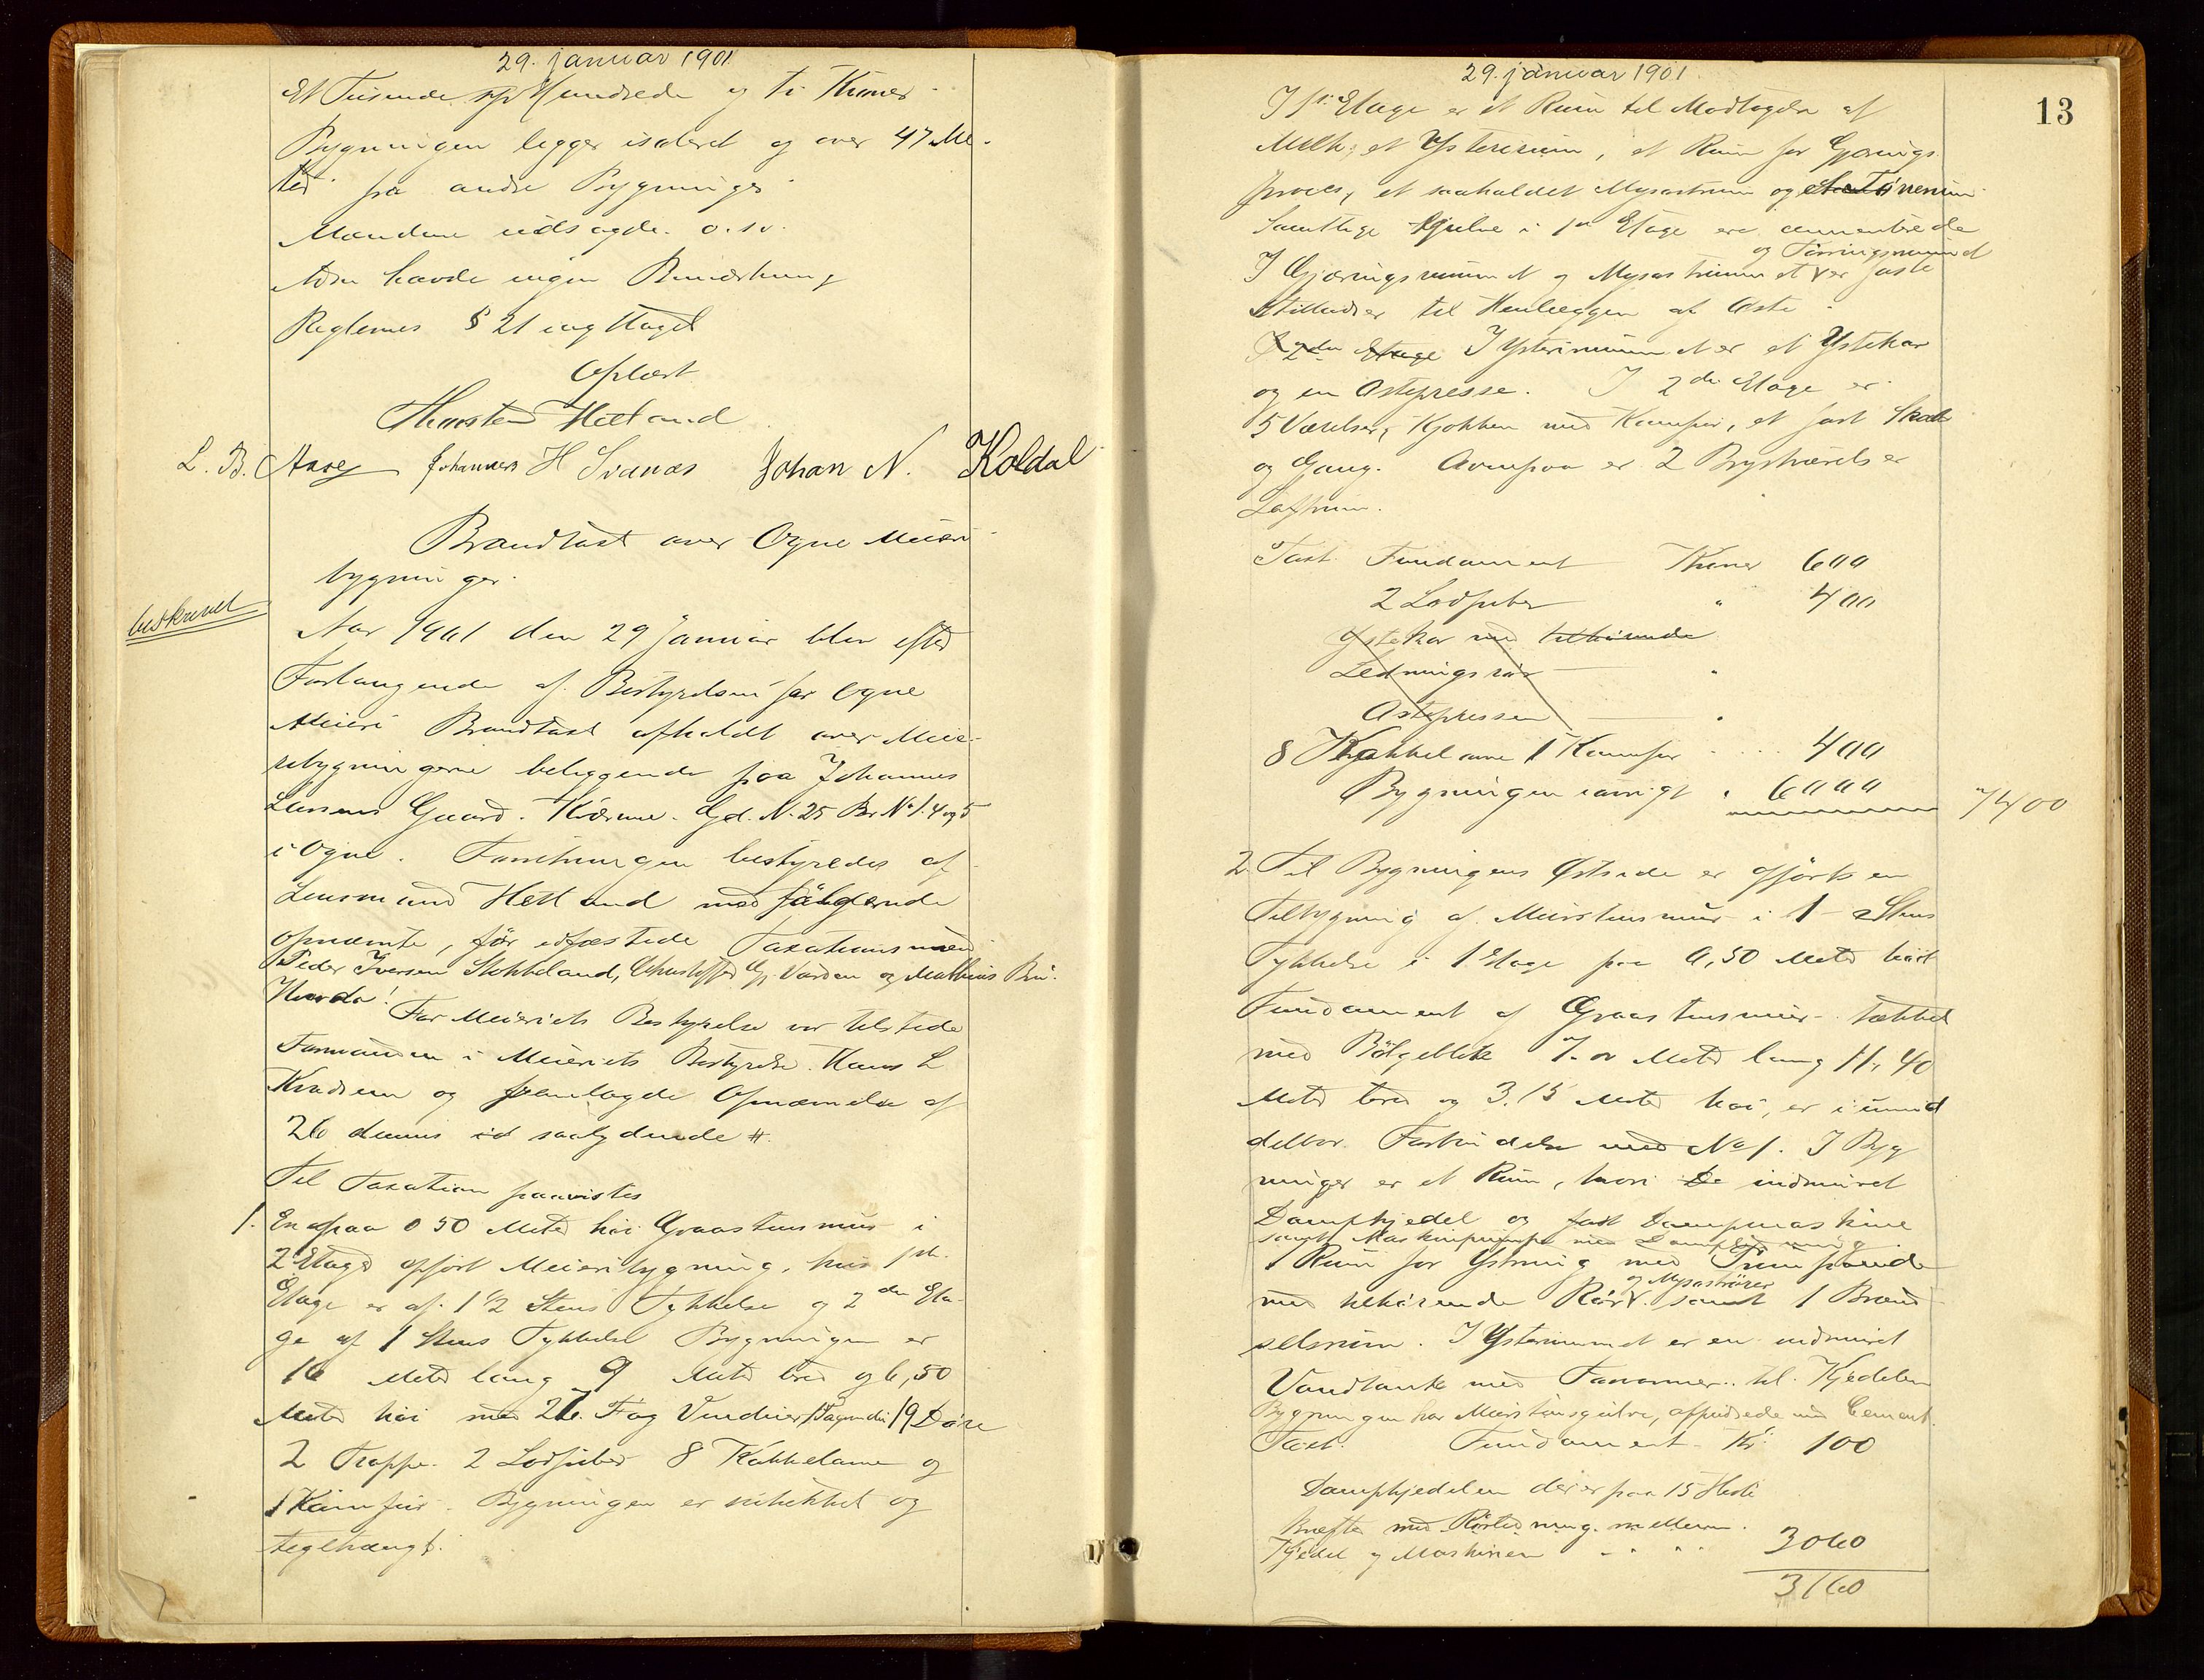 29. januar 1901
Et Tusende syv Hundrede og ti Kroner
Bygningen ligger isoleret og over 47 Me-
ter fra andre Bygninger
Mændene udsagde. o.s.v.
havde ingen Bemærkning
Reglernes § 21 iagttaget
Oplæst
Thorsten Hetland
L. B. Aase Johannes H Svanæs Johan N. Koldal
Brandtaxt over Ogne Meieri
bygninger.
beskrevet
Aar 1901 den 29 Januar blev efter
Forlangende af Bestyrelsen for Ogne
Meieri Brandtaxt afholdt over Meie-
ribygningerne beliggende paa Johannes
Larsens Gaard. Gd. N. 25 Br No 1. 4 og 5
i Ogne. Forretningen bestyredes af
Lensmand Hetland med følgende
opnævnte, før edfæstede Taxationsmænd
Peder Iversen Stokkeland, Christoffer G. Vardan og Mathias
For Meieriets Bestyrelse var tilstede
Formanden i Meieriets Bestyrelse. Hans L
og fremlagde Opnævnelse af
26 dennes id saalydende #.
Til Taxation paavistes
1. En paa 0 50 Meter høi Graastensmur i
2 Etager opført Meieribygning, hvis 1ste
Etage er af 1 1/2 Stens Tykkelse og 2den Eta-
ge af 1 Stens Tykkelse Bygningen er
16 Meter lang 9 Meter bred og 6,50
Meter høi med 26. Fag Vinduer 19 Døre
2 Trapper. 2 Lodpiber 8 Kakkelovne og
1 Komfur. Bygningen er og
teglhængt.
29. januar 1901.
13
I 1ste Etage er et Rum til Modtagelse af
Melk, et Ysterirum, et Rum for Gjærings
proces, et saakaldet Mysostrum og Tørrerum
Samtlige Gulve i 1ste Etage ere cementerede
og Tørringsrummet
I Gjæringsrummet og Mysostrummet er faste
Stilladser til Henlæggen af Oste.
I 2den Etage I Ysterirummet er et Ystekar
og en Ostepresse. I 2den Etage er
5 Værelser, Kjøkken med Komfur, et fast Skab
og Gang. Ovenpaa er 2 Kvistværelser
Loftrum.
Taxt. Fundament Kroner 600
2 Lodpiber " 400
Ystekar med tilhørende
Ledningsrør "
Ostepressen "
8 Kakkelovne 1 Komfur 400
Bygningen iøvrigt " 6000
7400
2. Til Bygningens Østside er opført en
Tilbygning af Murstensmur i 1 Stens
Tykkelse i 1 Etage paa 0,50 Meter høit
Fundament af Graastensmur. tækket
med Bølgeblik 7. Meter lang 11,40
Meter bred og 3.15 Meter høi, er i umid
delbar Forbindelse med No 1. I Byg
ninger er et Rum, hvori indmuret
Dampkjedel og fast Dampmaskine
samt Maskinpumpe med Dampledning.
1 Rum for Ystning med
og Mysoströrer
med tilhørende Rør. samt 1 Brænd
selsrum. I Ysterummet er en indmuret
Vandtank med Forvarmer til Kjedelen
Bygningen har Murstensgulve, afpudsede med Cement.
Taxt. Fundament Kr. 100
Dampkjedelen der er paa 15 Heste
Kræfter med Rørledning mellem
Kjedel og Maskinen 3060
3160